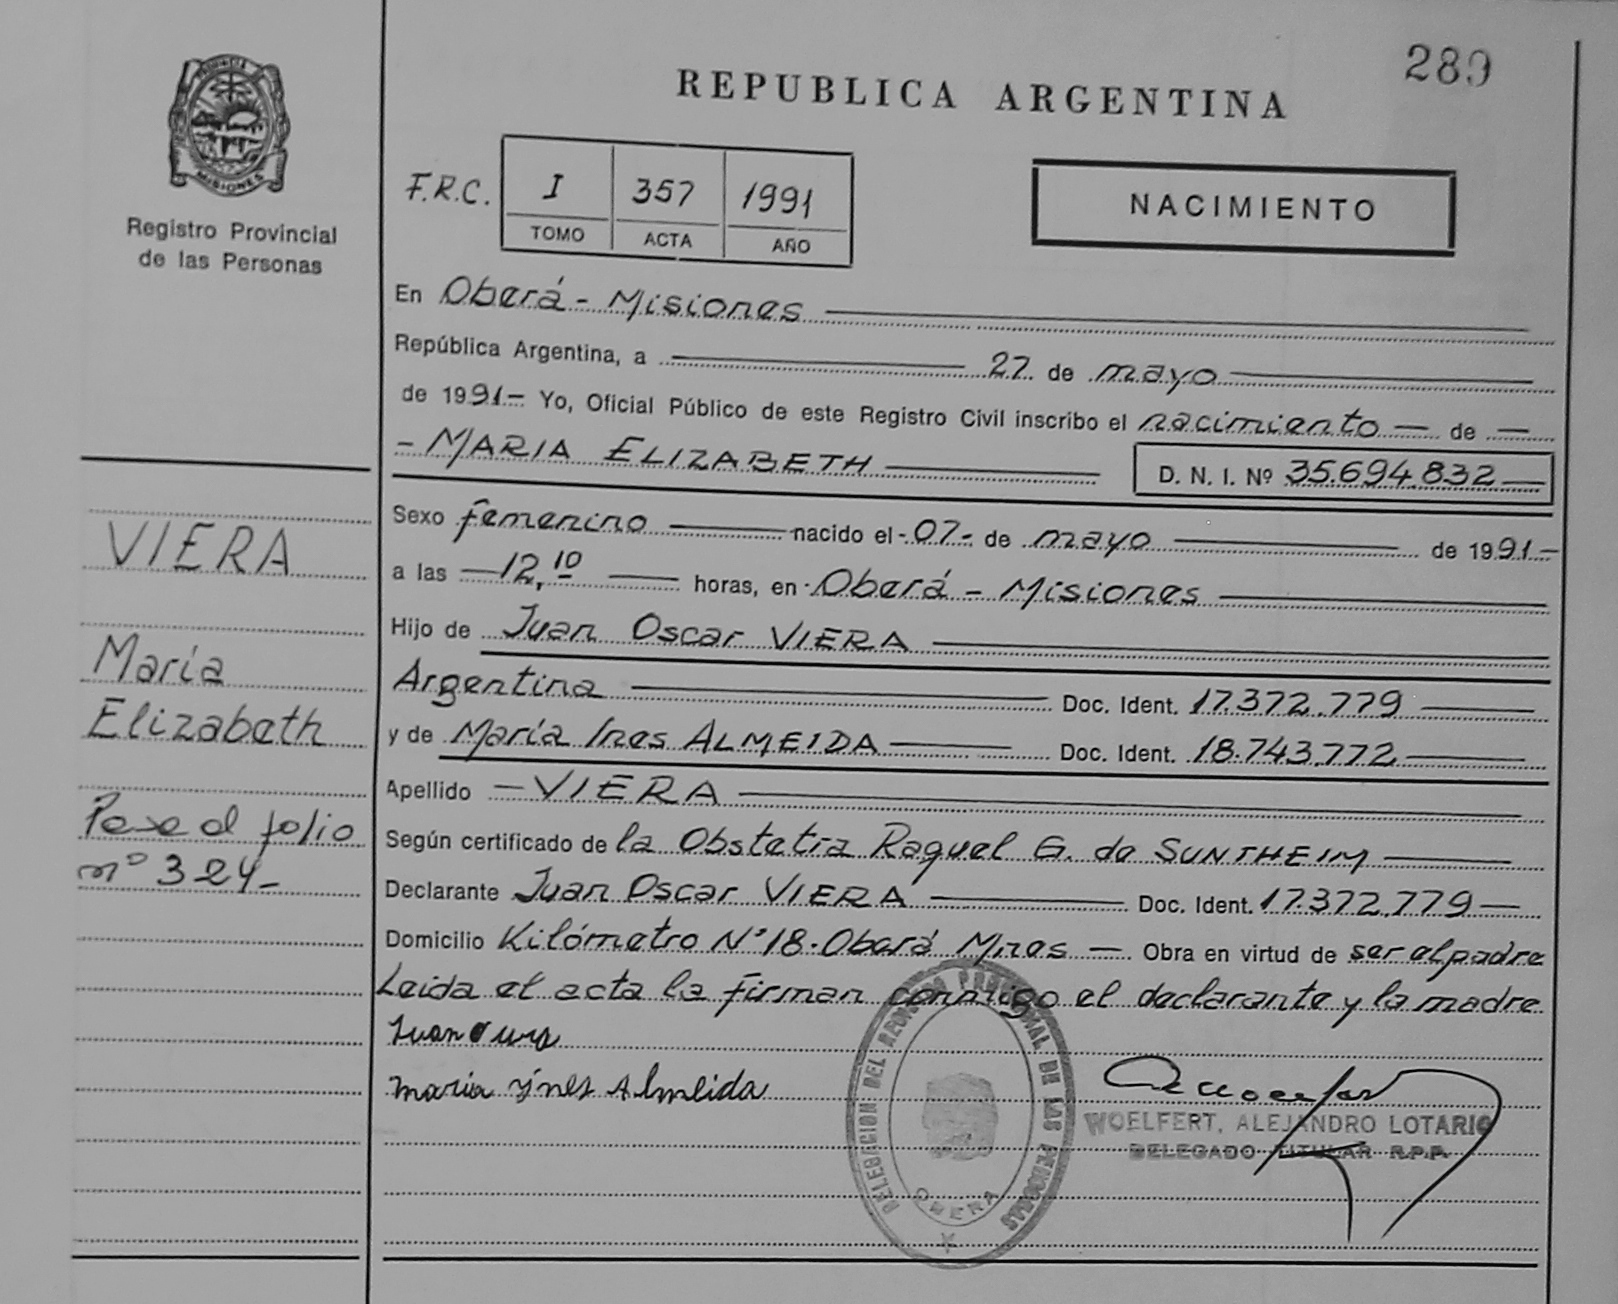 289
REPUBLICA ARGENTINA
PROVINCIA DE
MISIONES
Registro Provincial
de las Personas
F.R.C.
I 357 1991
TOMO ACTA AÑO
NACIMIENTO
En Oberá - Misiones
República Argentina, a 27 de mayo
de 1991- Yo, Oficial Público de este Registro Civil inscribo el nacimiento — de —
- MARIA ELIZABETH D. N. I. Nº 35.694.832
Sexo femenino nacido el - 07 - de mayo de 1991-
a las 12,10 horas, en Oberá - Misiones
Hijo de Juan Oscar VIERA
Argentina Doc. Ident. 17.372.779
y de María Ines ALMEIDA Doc. Ident. 18.743.772
Apellido - VIERA
Según certificado de la Obstetra Raquel G. de SUNTHEIM
Declarante Juan Oscar VIERA Doc. Ident. 17.372.779
Domicilio Kilómetro Nº 18. Oberá Mnes - Obra en virtud de ser el padre
Leida el acta la firman conmigo el declarante y la madre
Juan
maria ynes Almeida
WOELFERT, ALEJANDRO LOTARIO
DELEGADO TITULAR R.P.P.
DELEGACION DEL REGISTRO PROVINCIAL DE LAS PERSONAS
OBERA
VIERA
María
Elizabeth
Pase al folio
nº 324-